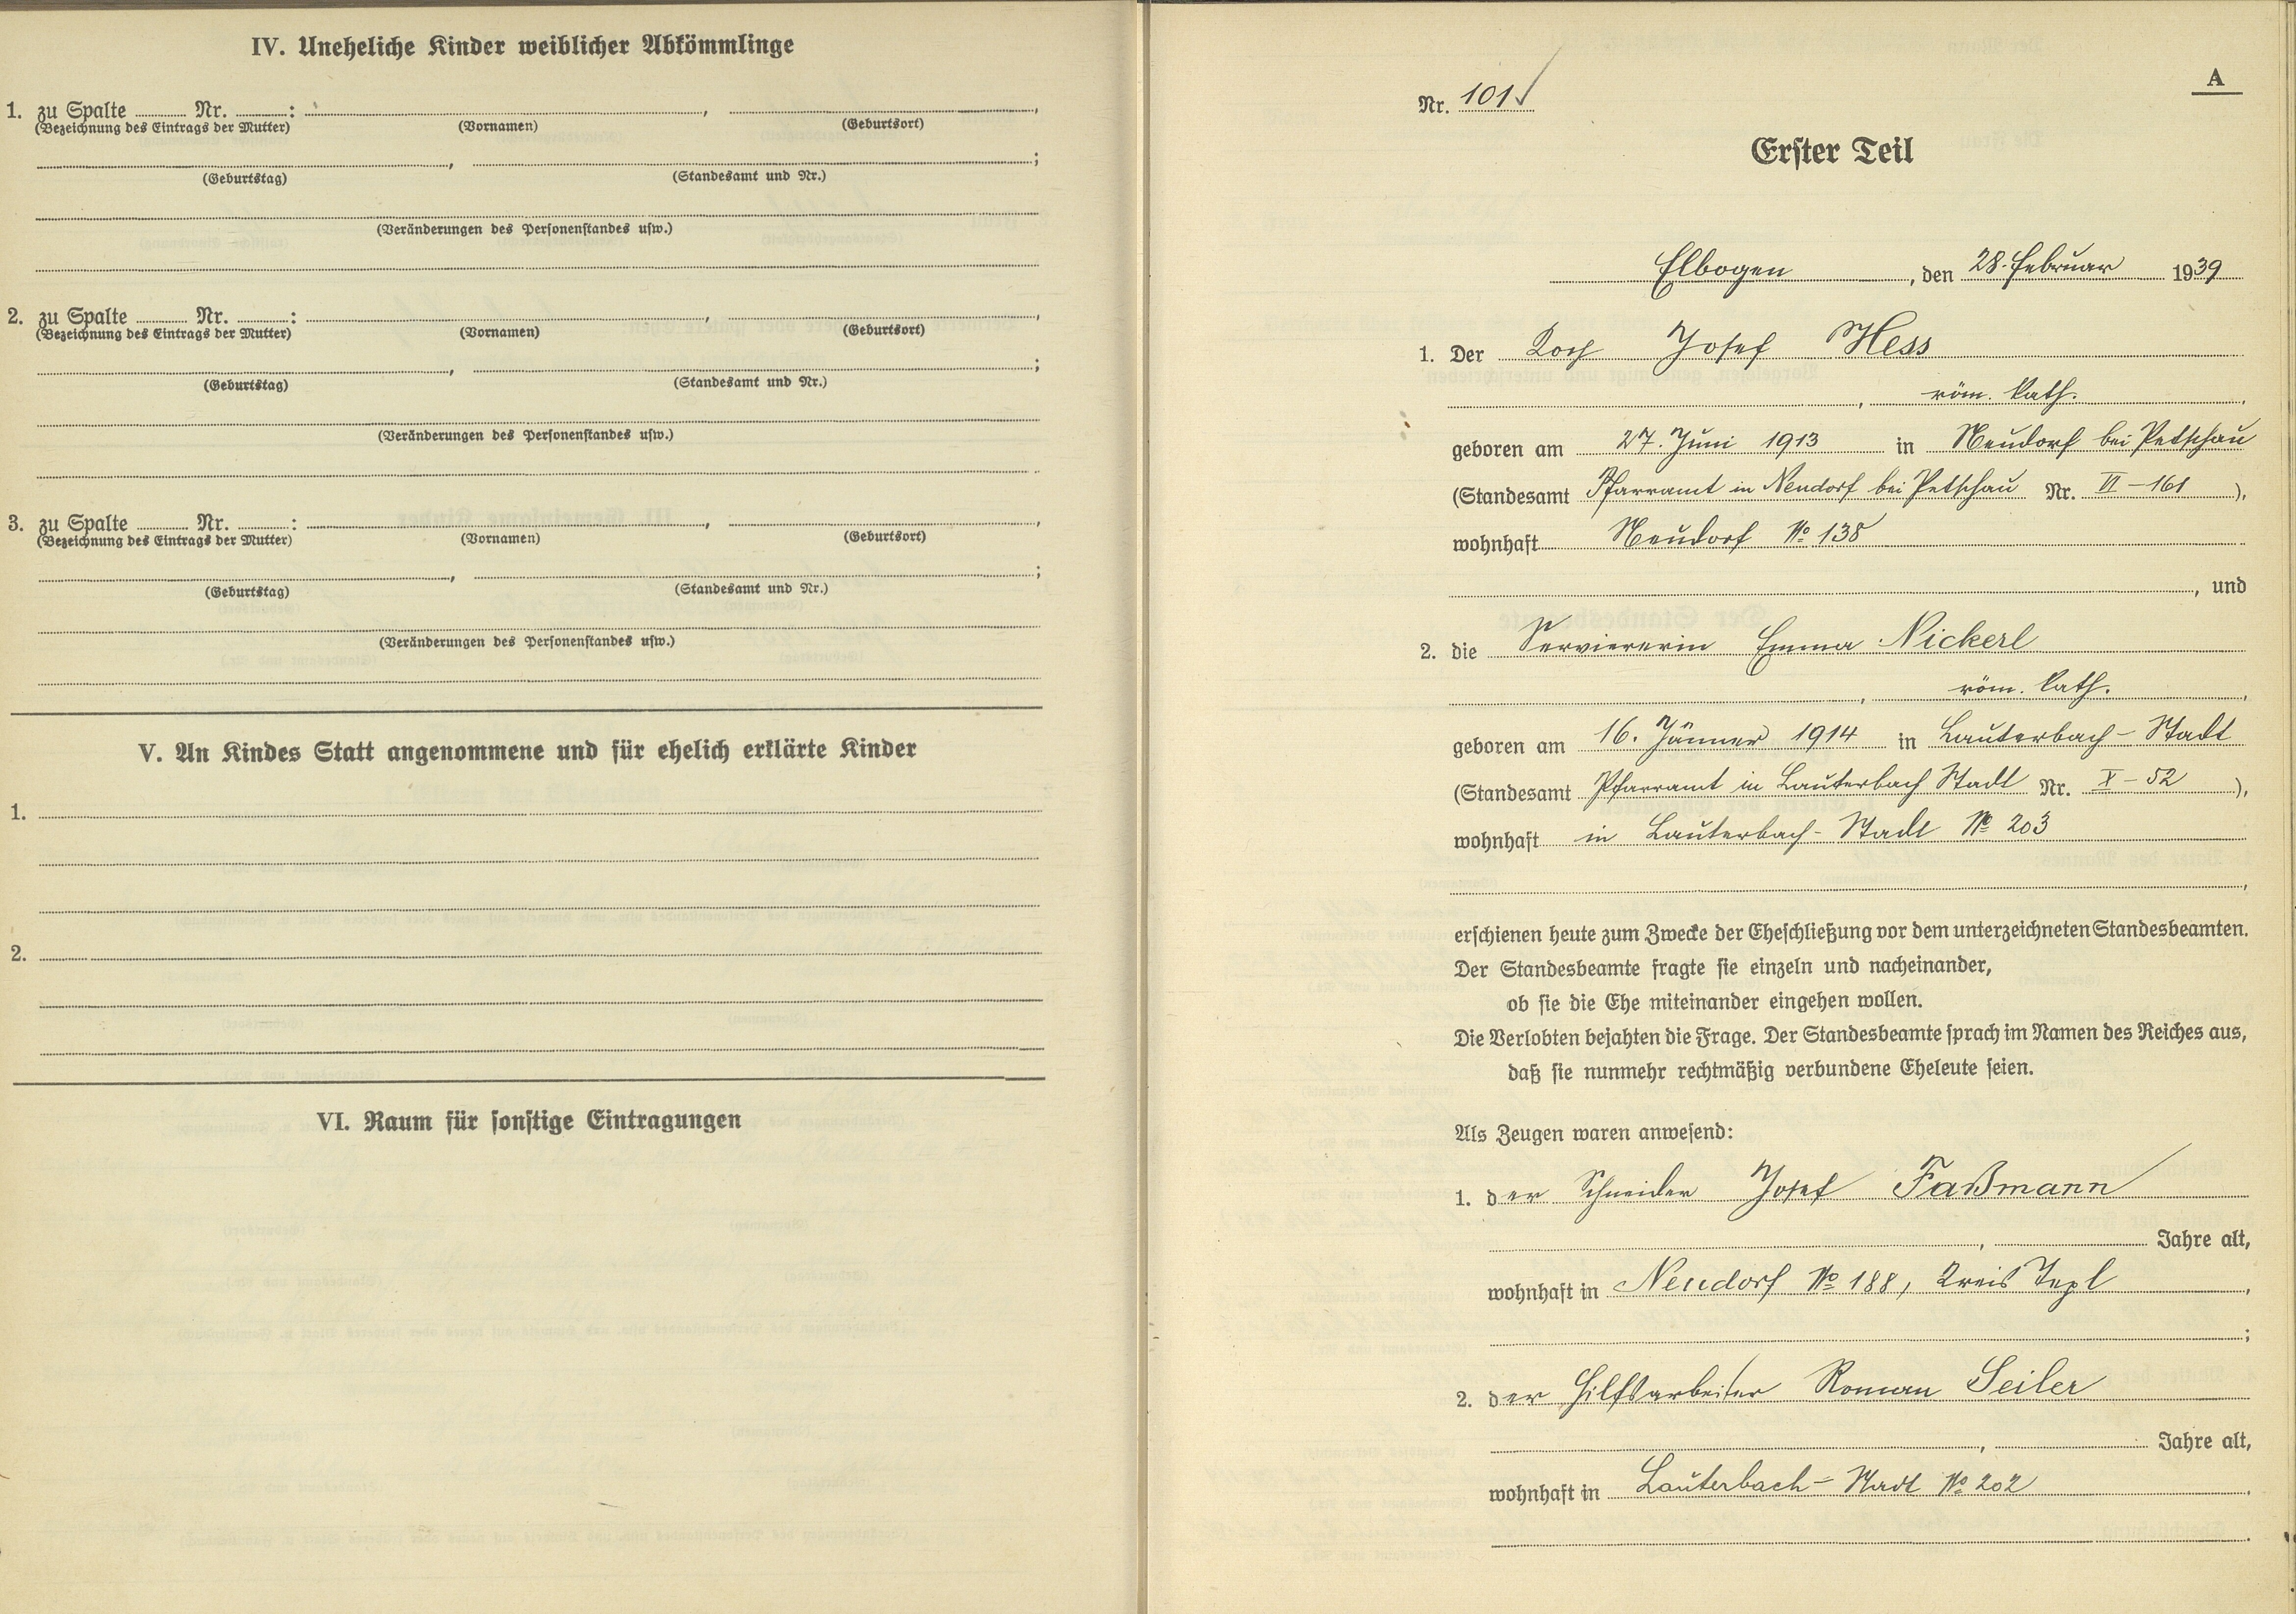 IV. Uneheliche Kinder weiblicher Abkömmlinge
1. zu Spalte ........ Nr. ........: ........, ........,
(Bezeichnung des Eintrags der Mutter) (Vornamen) (Geburtsort)
........, ........;
(Geburtstag) (Standesamt und Nr.)
(Veränderungen des Personenstandes usw.)
2. zu Spalte ........ Nr. ........: ........, ........,
(Bezeichnung des Eintrags der Mutter) (Vornamen) (Geburtsort)
........, ........;
(Geburtstag) (Standesamt und Nr.)
(Veränderungen des Personenstandes usw.)
3. zu Spalte ........ Nr. ........: ........, ........,
(Bezeichnung des Eintrags der Mutter) (Vornamen) (Geburtsort)
........, ........;
(Geburtstag) (Standesamt und Nr.)
(Veränderungen des Personenstandes usw.)
V. An Kindes Statt angenommene und für ehelich erklärte Kinder
1.
2.
VI. Raum für sonstige Eintragungen
A
Nr. 101
Erster Teil
Elbogen, den 28. Februar 1939
1. Der Koch Josef Hess
, röm. kath.,
geboren am 27. Juni 1913 in Neudorf bei Petschau
(Standesamt Pfarramt in Neudorf bei Petschau Nr. VI – 161),
wohnhaft Neudorf No 138
, und
2. die Serviererin Emma Nickerl
, röm. kath.,
geboren am 16. Jänner 1914 in Lauterbach – Stadt
(Standesamt Pfarramt in Lauterbach Stadt Nr. X – 52),
wohnhaft in Lauterbach – Stadt No 203
,
erschienen heute zum Zwecke der Eheschließung vor dem unterzeichneten Standesbeamten.
Der Standesbeamte fragte sie einzeln und nacheinander,
ob sie die Ehe miteinander eingehen wollen.
Die Verlobten bejahten die Frage. Der Standesbeamte sprach im Namen des Reiches aus,
daß sie nunmehr rechtmäßig verbundene Eheleute seien.
Als Zeugen waren anwesend:
1. der Schneider Josef Faßmann
, ........ Jahre alt,
wohnhaft in Neudorf No 188, Kreis Tepl,
;
2. der Hilfsarbeiter Roman Seiler
, ........ Jahre alt,
wohnhaft in Lauterbach – Stadt No 202.
.